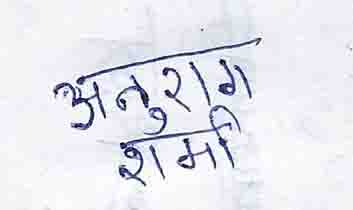 अनुराग
शर्मा